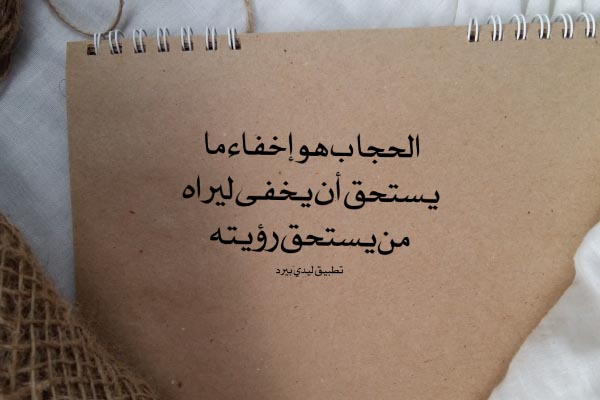 الحجاب هو إخفاء ما
يستحق أن يخفى ليراه
من يستحق رؤيته
تطبيق ليدي بيرد